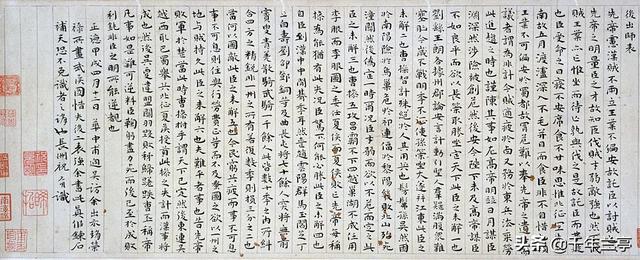 後出師表
先帝慮漢賊不兩立王業不偏安故託臣以討賊也以
先帝之明量臣之才故知臣伐賊才弱敵強也然不伐
賊王業亦亡惟坐而待亡孰與伐之是故託臣而弗疑
也臣受命之日寢不安席食不甘味思惟北征宜先入
南故五月渡瀘深入不毛并日而食臣非不自惜也顧
王業不可偏安於蜀都故冒危難以奉先帝之遺意而
議者謂為非計今賊適疲於西又務於東兵法乘勞
此進趨之時也謹陳其事如左高帝明並日月謀臣
淵深然涉險被創危然後安今陛下未及高帝謀臣
不如良平而欲以長策取勝坐定天下此臣之未解一也
劉繇王朗各據州郡論安言計動引聖人群疑滿腹眾難
塞胸今歲不戰明年不征使孫策坐大遂并江東此臣之
未解二也曹操智計殊絕於人其用兵也髣髴孫吳然困
於南陽險於烏巢危於祁連偪於黎陽幾敗北山殆死
潼關然後偽定一時爾況臣才弱而欲以不危而定之此
臣之未解三也曹操五攻昌霸不下四越巢湖不成任用
李服而李服圖之委任夏侯而夏侯敗亡先帝每稱
操為能猶有此失況臣駑下何能必勝此臣之未解四也
自臣到漢中中間期年耳然喪趙雲陽群馬玉閻芝丁
立白壽劉郃鄧銅等及曲長屯將七十餘人突將無前
賨叟青羌散騎武騎一千餘人此皆數十年之內所糾
合四方之精銳非一州之所有若復數年則損三分之二也
當何以圖敵此臣之未解五也今民窮兵疲而事不可息
事不可息則住與行勞費正等而不及蚤圖之欲以一州之
地與賊持久此臣之未解六也夫難平者事也昔先帝
敗軍於楚當此時曹操拊手謂天下已定然後東連吳
越西取巴蜀舉兵北征夏侯授首此操之失計而漢事將
成也然後吳更違盟關羽毀敗秭歸蹉跌曹丕稱帝
凡事如是難可逆料臣鞠躬盡力死而後已至於成敗
利鈍非臣之明所能逆覩也
正德甲戌四月十日華中甫過吳訪余出
後表余書此真
補天恐不免識者之誚長洲祝允明識
头条 @千年兰亭